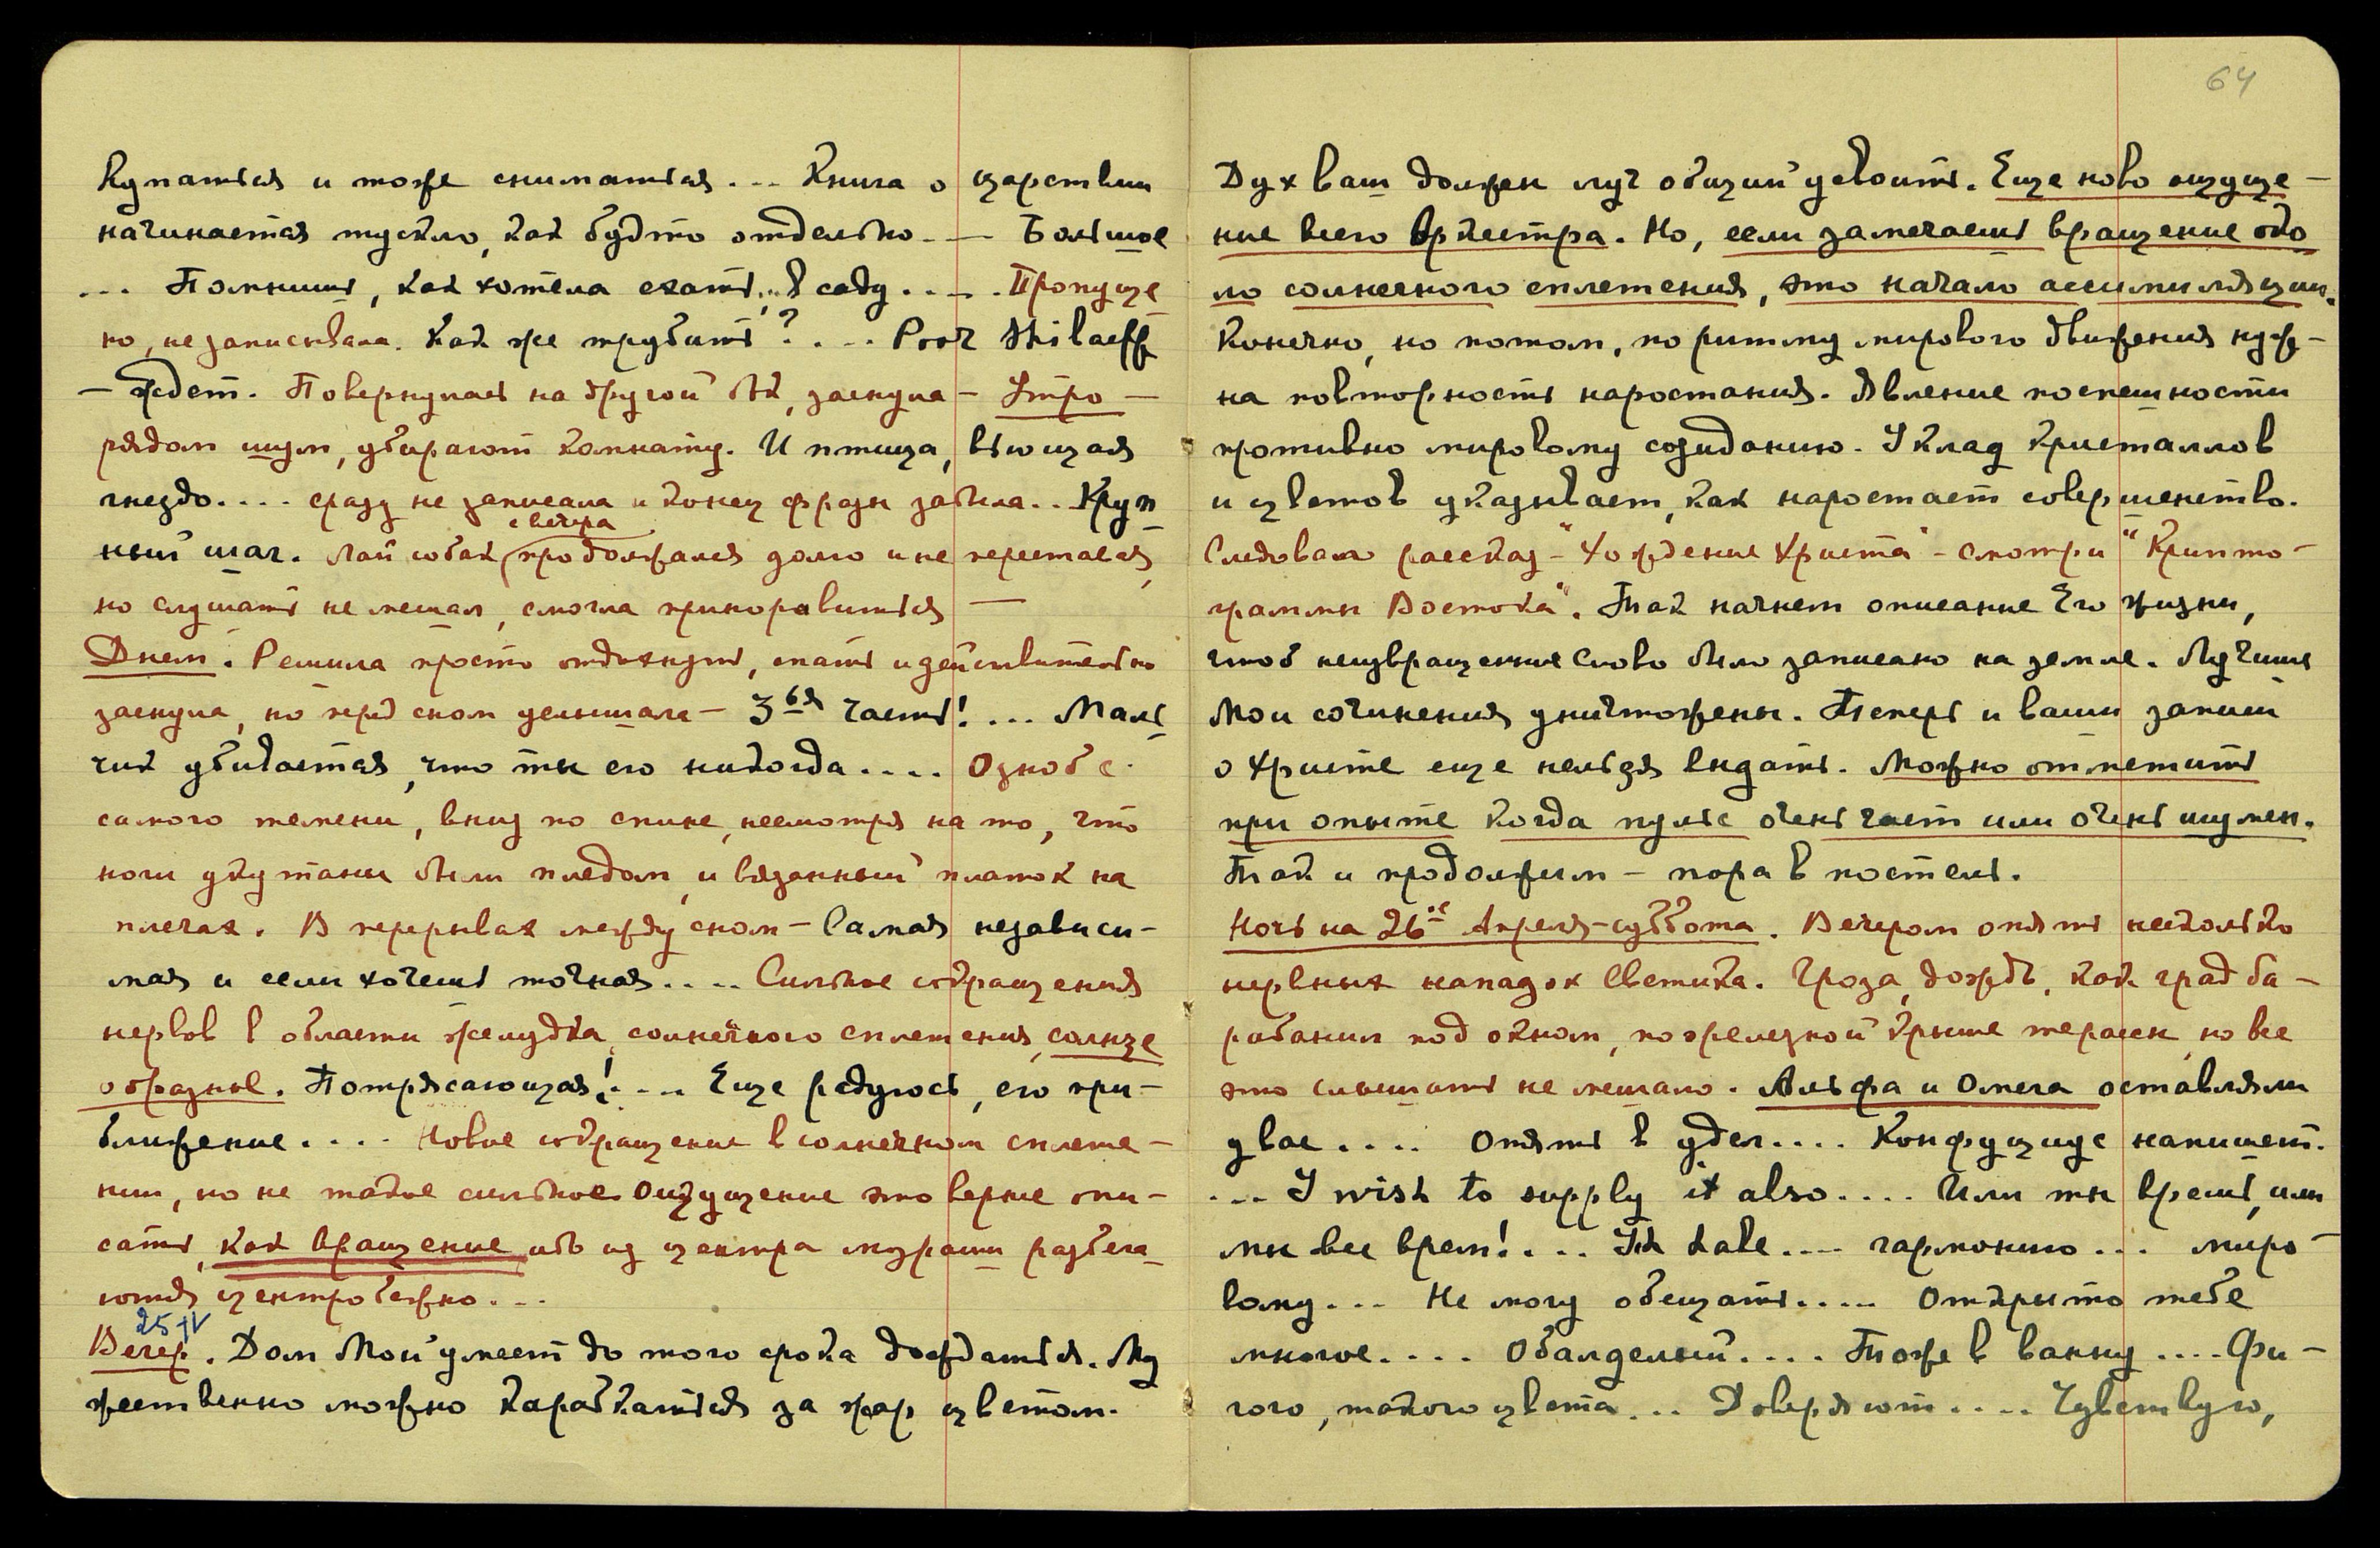 купаться и тоже сниматься... Книга о царствии
начинается тускло, как будто отдельно.__ Большое
... Помнишь, как хотела ехать... в саду.... Пропуще
но, не записывала. Как же трубить?.... Poor Shilaeff
– ждет. Повернулась на другой бок, заснула – Утро –
рядом шум, убирают комнату. И птица, вьющая
гнездо.... сразу не записала и конец фразы забыла... Круп
с вечера
ный шаг. Лай собак продолжался долго и не переставая,
но слушать не мешал, смогла приноровиться —
Днем. Решила просто отдохнуть, спать и действительно
заснула, но перед сном услышала – 3ья часть!... Маль
чик убивается, что ты его никогда.... Озноб с
самого темени, вниз по спине, несмотря на то, что
ноги укутаны были пледом и вязанный платок на
плечах. В перерывах между сном – Самая независи-
мая и если хочешь точная.... Сильное сокращения
нервов в области желудка, солнечного сплетения, солнце
образные. Потрясающая!.... Еще радуюсь, его при-
ближение.... Новое сокращение в солнечном сплете-
нии, но не такое сильное. Ощущение это вернее опи-
сать, как вращение, из центра мураши разбега
ются центробежно...
25 IV
Вечер. Дом Мой умеет до того срока дождаться. Му
жественно можно карабкаться за жар цветом.
64
Дух ваш должен луч общий усвоить. Еще ново ощуще –
ние всего оркестра. Но, если замечаешь вращение око
ло солнечного сплетения, это начало ассимиляции.
Конечно, но потом, по ритму мирового движения нуж-
на повторность наростания. Явление поспешности
противно мировому созиданию. Уклад кристаллов
и цветов указывает, как наростает совершенство.
Следовал рассказ – "Хождение Христа" – смотри "Крипто-
граммы Востока". Так начнем описание Его жизни,
чтоб неизвращенное Слово было записано на земле. Лучшие
Мои сочинения уничтожены. Теперь и ваши записи
о Христе еще нельзя видать. Можно отметить
при опыте когда пульс очень част или очень шумен.
Так и продолжим – пора в постель.
Ночь на 26ое Апреля – суббота. Вечером опять несколько
нервных нападок Светика. Гроза, дождь, как град ба –
рабанил под окном, по железной крыше терассы, но все
это слышать не мешало. Альфа и Омега оставляли
двое.... Опять в удел.... Конфуциус напишет.
... I wish to supply it also.... Или ты врешь, или
мы все врем!.... The hate.... гармонию... миро-
вому... Не могу обещать..... Открыто тебе
многое.... Обалделый.... Тоже в ванну.... Фи –
гого, такого цвета... Доверяют.... Чувствую,